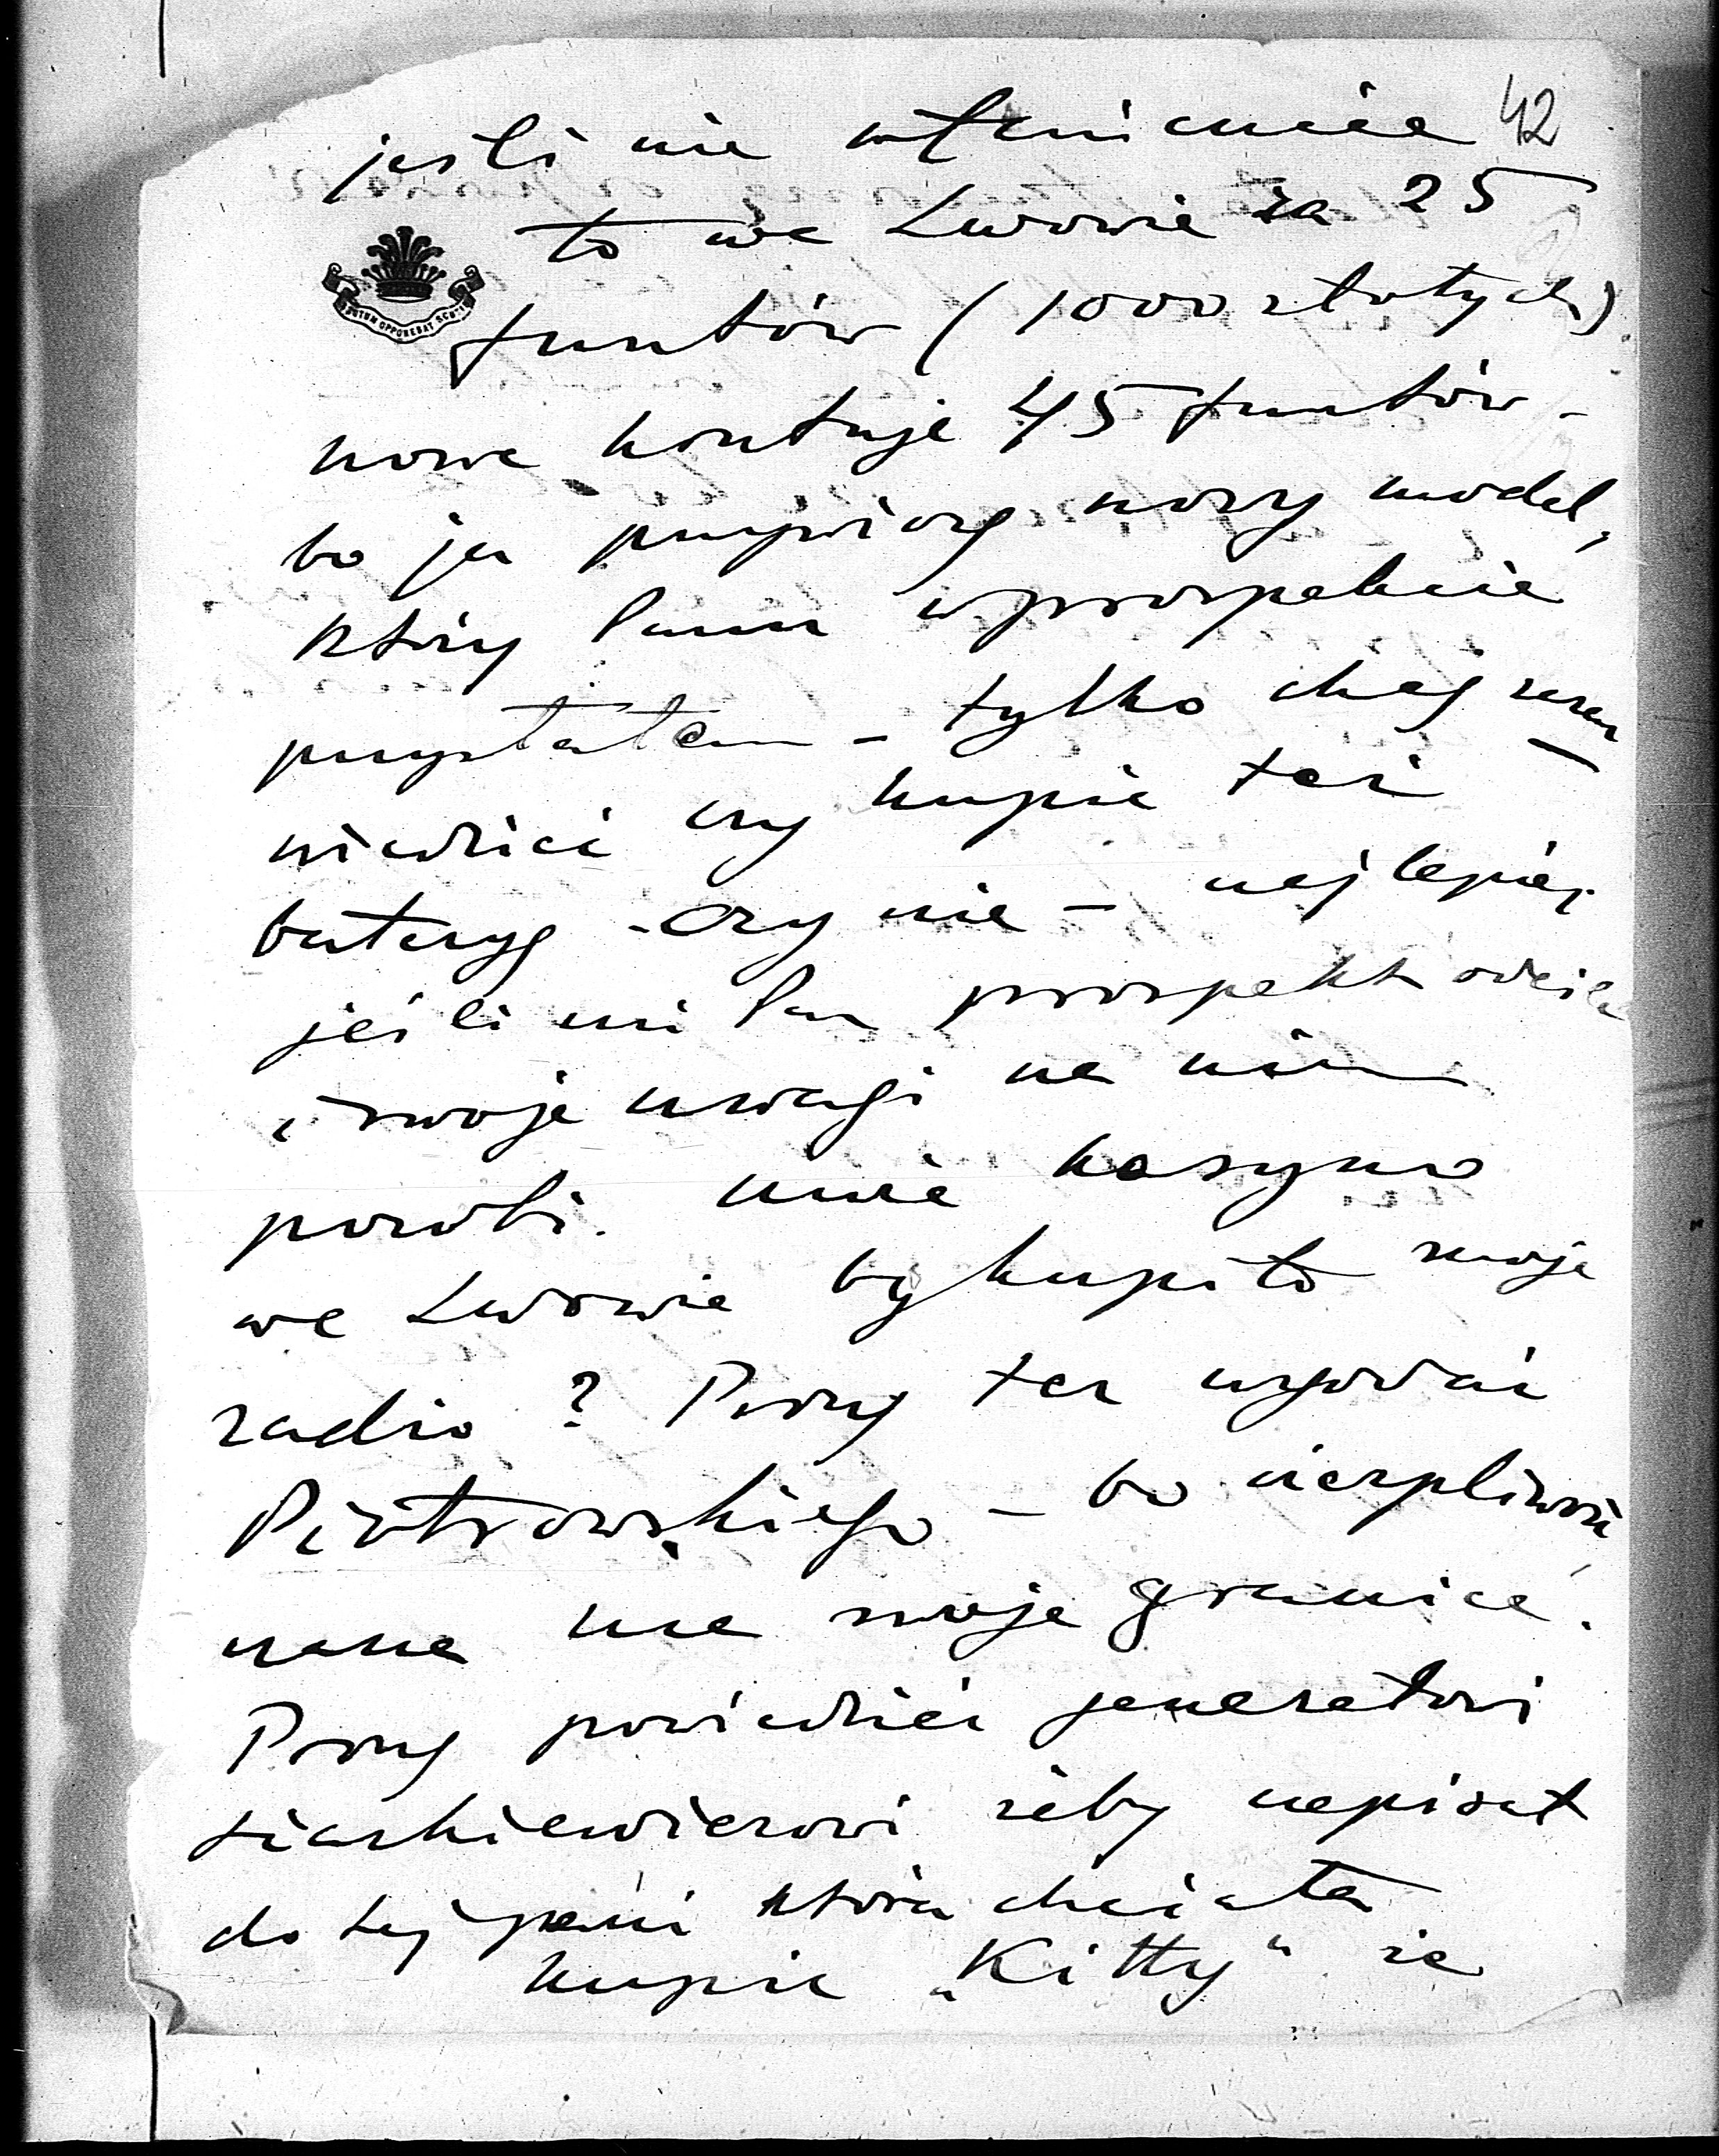 42
jeśli nie
to we Lwowie za 25
TOTUM OPPONEBAT SCUTUM
funtów (1000 złotych)
nowe kosztuje 45 funtów -
bo ja przywiozę nowy model,
który Panu w prospekcie
przysłałem - tylko chcę
wiedzieć czy kupić też
baterye - czy nie - najlepiej
jeśli mi Pan prospekt odeśle
i swoje uwagi na nim
porobi. może kasyno
we Lwowie by kupiło moje
radio? Proszę też
Piotrowskiego - bo cierpliwość
nasza ma swoje granice.
Proszę powiedzieć jenerałowi
żeby napisał
do tej pani która chciała
kupić „Kitty" że